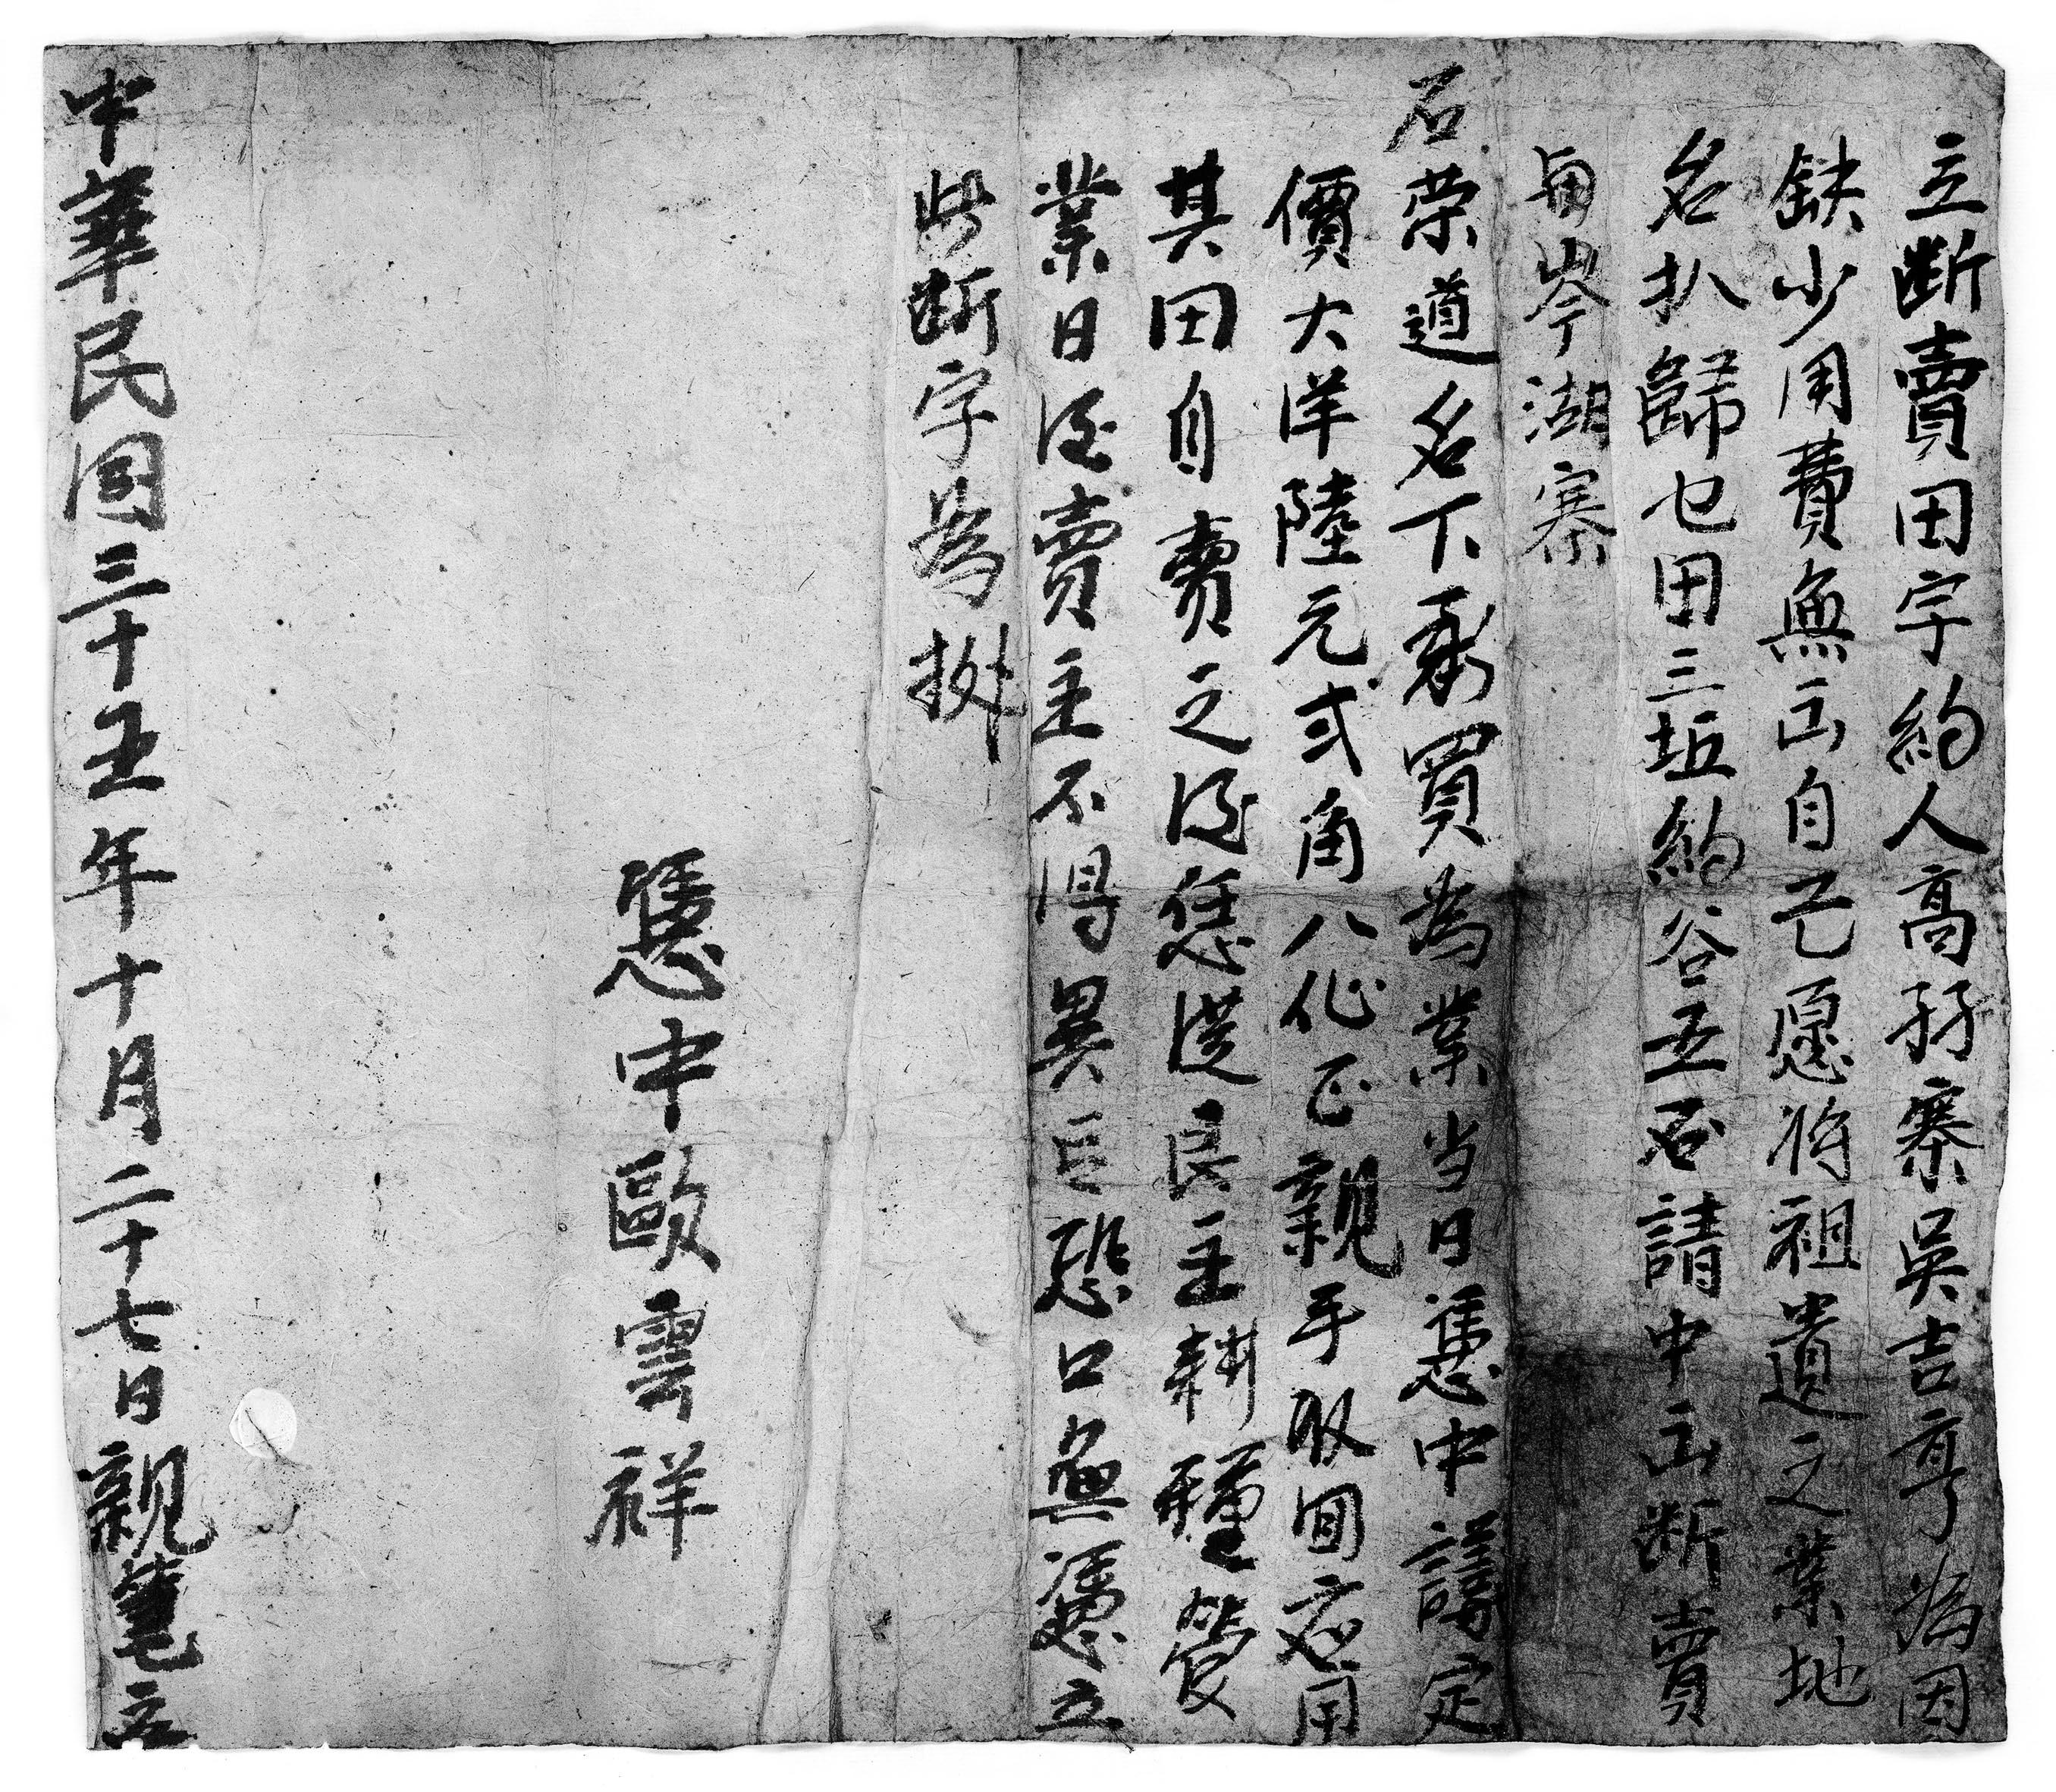 立断賣田字約人高孖寨吳吉亨為因
缺少用費無出自己愿将祖遺之業地
名扒歸屯田三坵約谷五石請中出断賣
與岑湖寨
石荣道名下承買為業当日憑中議定
價大洋陸元弍角八仙正親手取囬应用
其田自賣之後任慿從良主耕種管
業日後賣主不得異言恐口無憑立
此断字為拠
憑中歐雲祥
中華民国三十五年十月二十七日親筆立